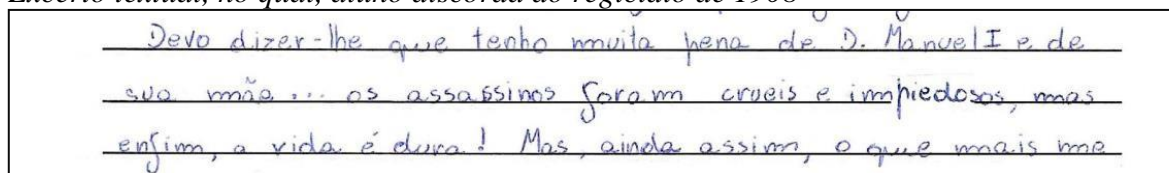 Excerto textual, no qual, aluno discorda do regicídio de 1908
Devo dizer-lhe que tenho muita pena de D. Manuel I e de
sua mãe... os assassinos foram crueis e impiedosos, mas
enfim, a vida é dura! Mas, ainda assim, o que mais me